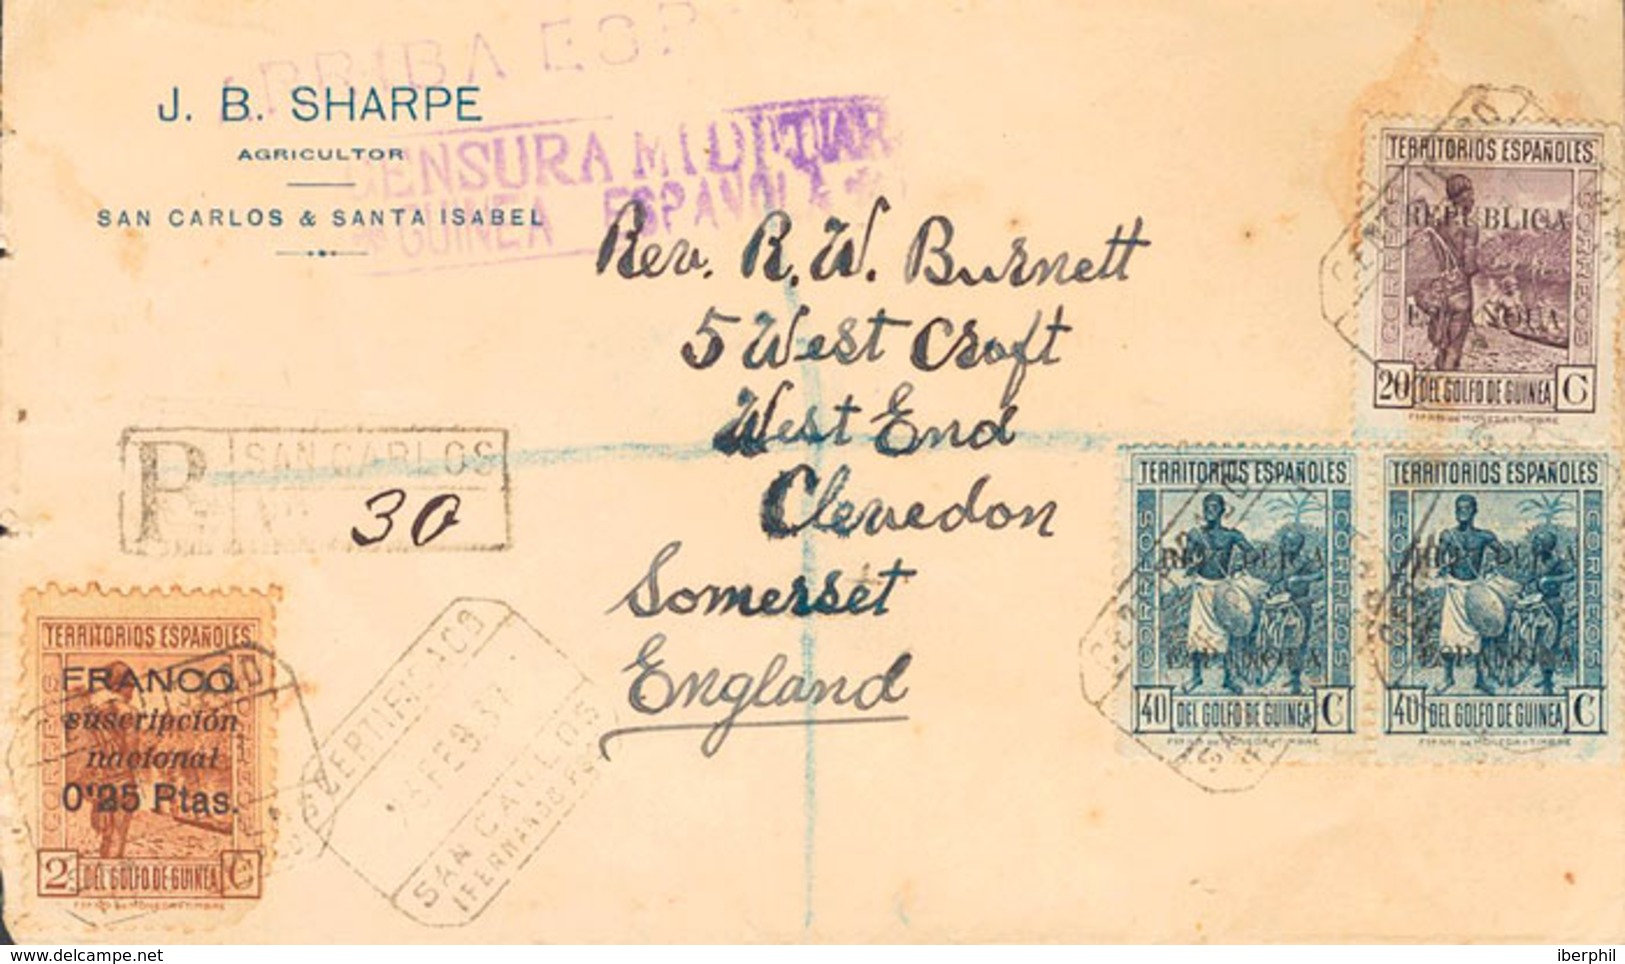 ARRIBA ESP
J. B. SHARPE
AGRICULTOR
SAN CARLOS & SANTA ISABEL
CENSURA MILITAR
GUINEA ESPAÑOLA
Rev. R. W. Burnett
5 West Croft
West End
Clevedon
Somerset
England
R
SAN CARLOS
30
TERRITORIOS ESPAÑOLES
CORREOS
CORREOS
REPUBLICA
ESPAÑOLA
20 DEL GOLFO DE GUINEA C
TERRITORIOS ESPAÑOLES
CORREOS
CORREOS
REPUBLICA
ESPAÑOLA
40 DEL GOLFO DE GUINEA C
TERRITORIOS ESPAÑOLES
CORREOS
CORREOS
REPUBLICA
ESPAÑOLA
40 DEL GOLFO DE GUINEA C
TERRITORIOS ESPAÑOLES
FRANCO.
suscripción
nacional
0'25 Ptas.
CORREOS
2 DEL GOLFO DE GUINEA C
CERTIFICADO
FEB 37
SAN CARLOS
(FERNANDO POO
delcampe.net
iberphil